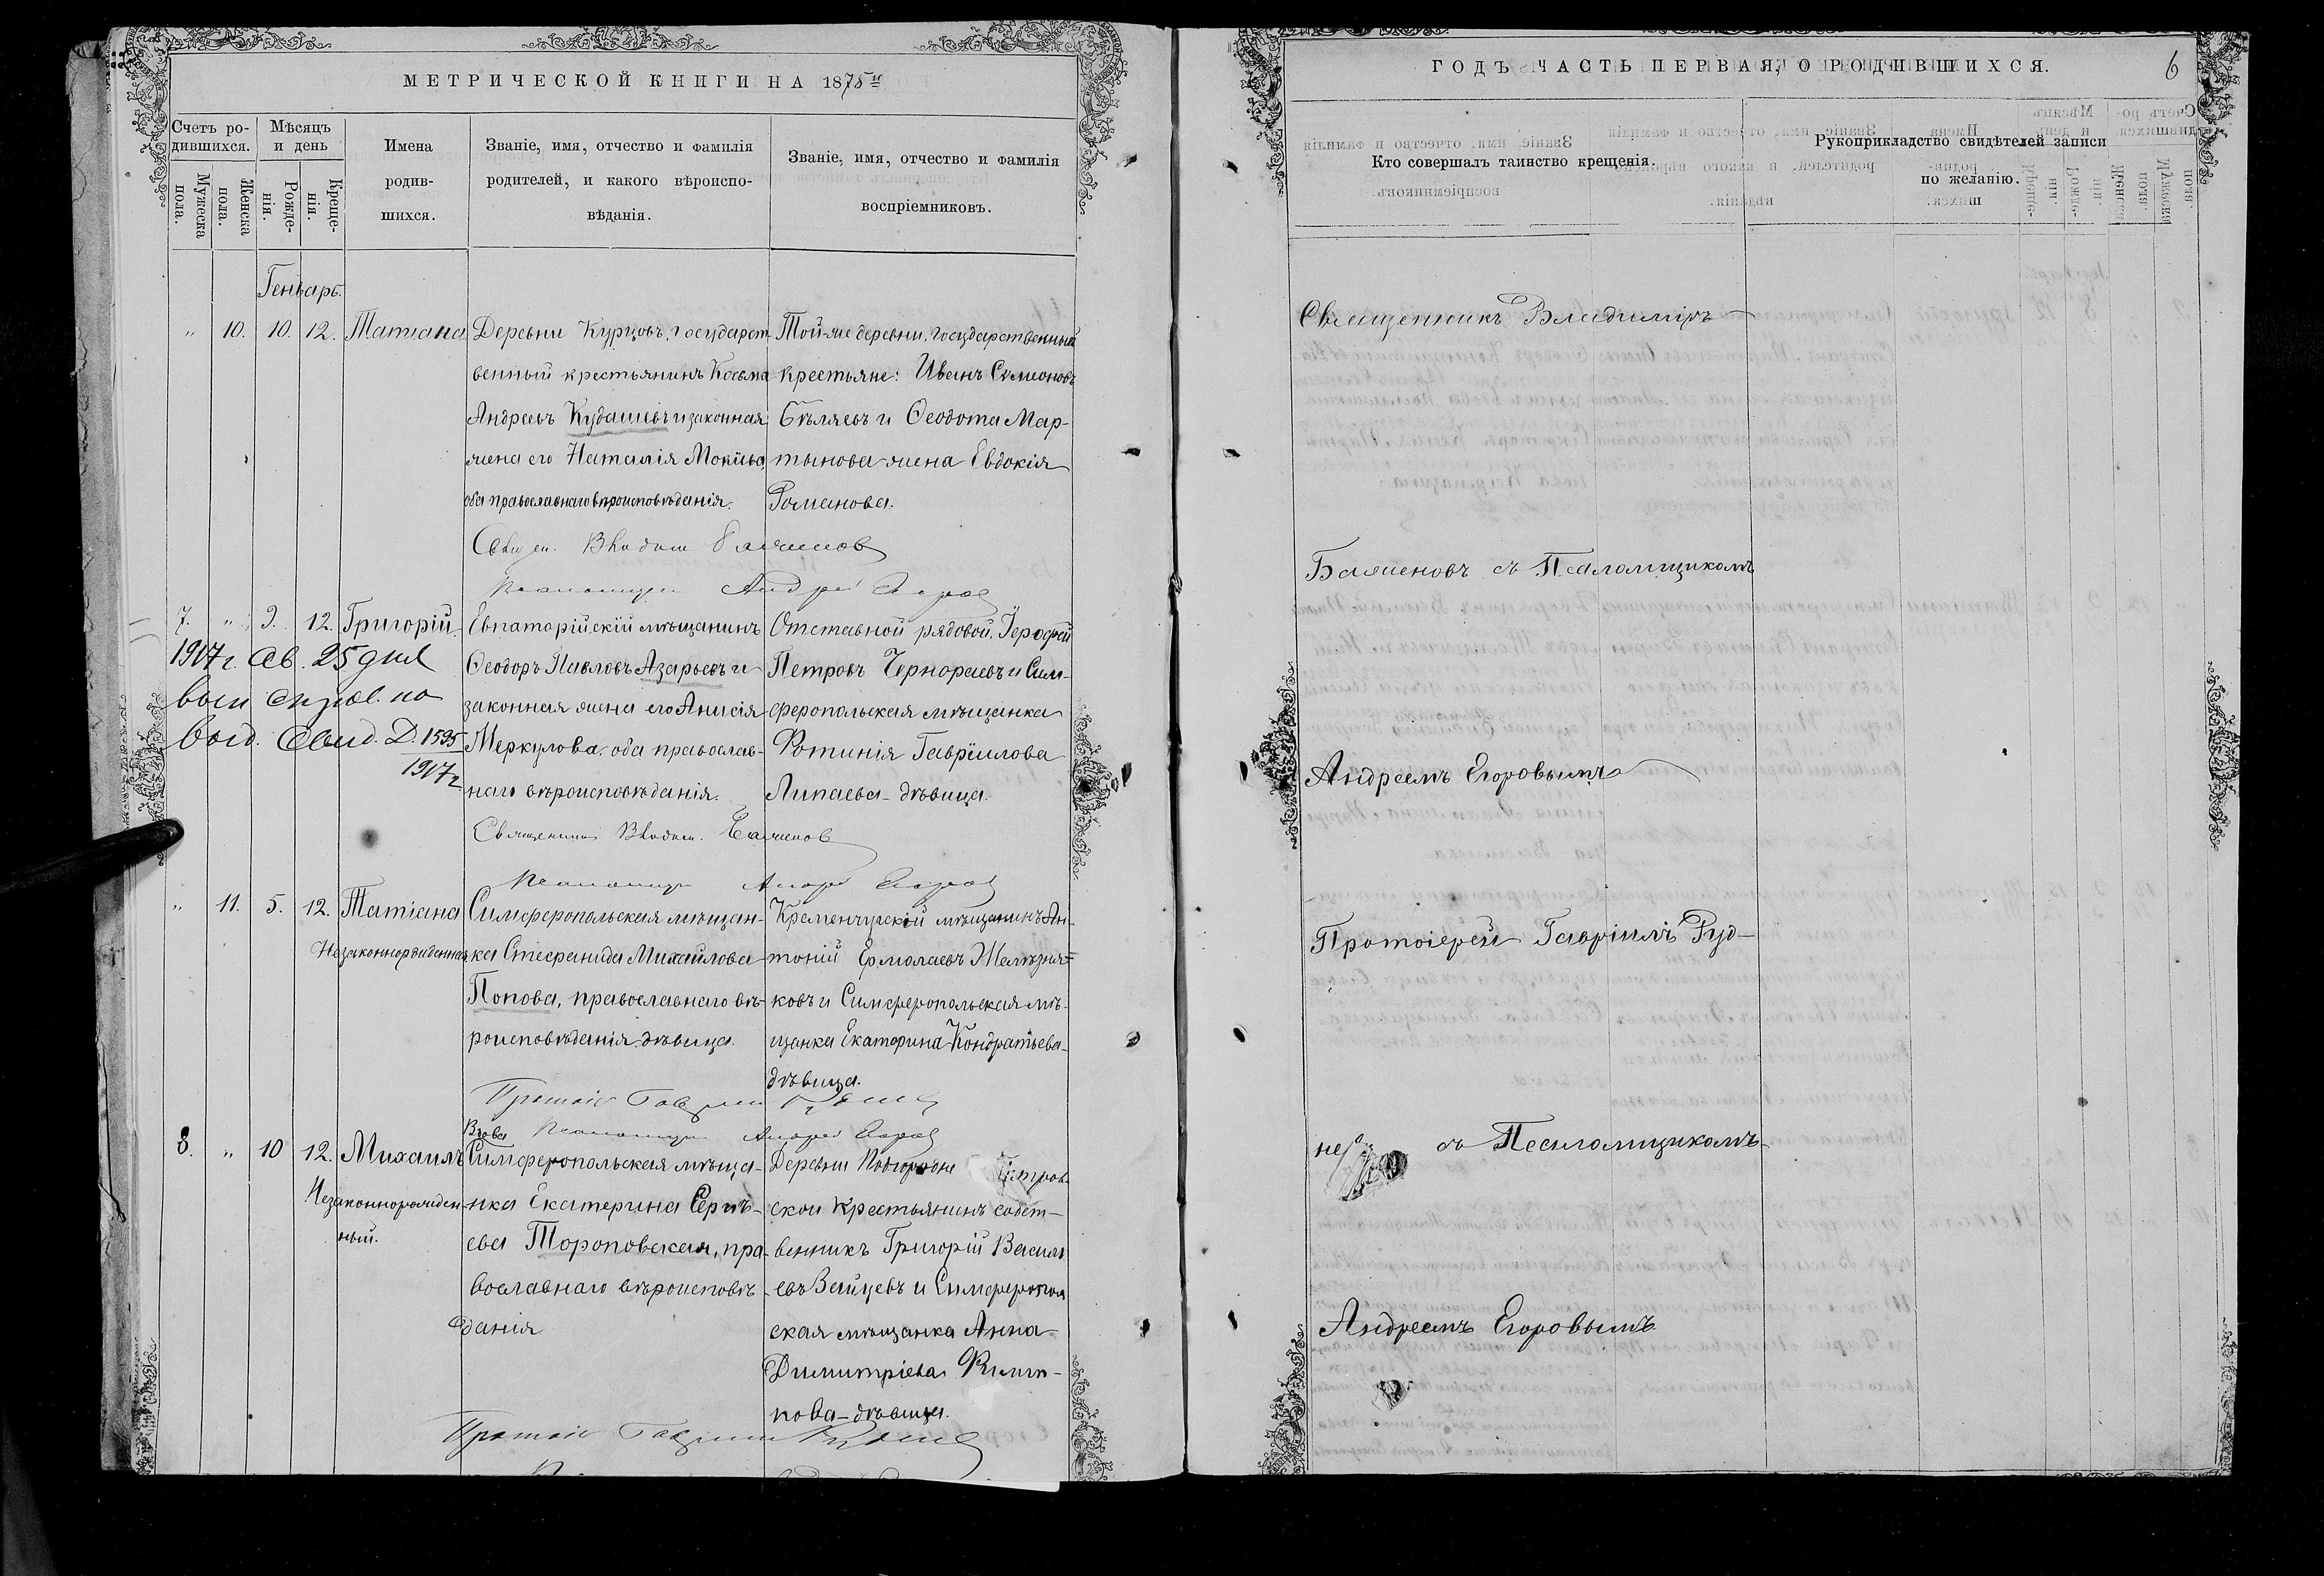 МЕТРИЧЕСКОЙ КНИГИ НА 1875й
Счетъ ро-
дившихся.
Мужеска
пола.
Женска
пола.
Мѣсяцъ
и день
Рожде-
нія.
Креще-
нія.
Имена
родив-
шихся.
Званіе, имя, отчество и фамилія
родителей, и какого вѣроиспо-
вѣданія.
Званіе, имя, отчество и фамилія
воспріемниковъ.
Генварь.
" 10. 10. 12. Татіана
Деревни Курцовъ, государст-
венный крестьянинъ Косьма
Андреевъ Кудашевъ и законная
жена его Наталія Мокіева
оба православнаго вѣроисповѣданія.
Той-же деревни, государственный
крестьяне: Иванъ Симеоновъ
Бѣляевъ и Ѳеодота Мар-
тынова жена Евдокія
Романова.
Андрей Егоров
7. " 9. 12. Григорій
1917 г. Ав. 25 дня
выд. Свид. 1535
1917 г.
Евпаторійскій мѣщанинъ
Ѳеодоръ Павловъ Азарьевъ и
законная жена его Анисія
Меркулова, оба православ-
наго вѣроисповѣданія.
Отставной рядовой, Іерофей
Петровъ Черноревъ и Сим-
феропольская мѣщанка
Фотинія Гавріилова
Липаева - дѣвица.
Священник Владим. Баженов
Андрей Егоров
" 11. 5. 12. Татіана
Незаконнорожденная
Симферопольская мѣщан-
ка Стефанида Михайлова
Попова, православнаго вѣ-
роисповѣданія. дѣвица.
Кременчугскій мѣщанинъ Ан-
тоній Ермолаевъ Желѣзня-
ковъ и Симферопольская мѣ-
щанка Екатерина Кондратьева-
дѣвица.
Андрей Егоров
8. " 10 12. Михаилъ
Незаконнорожден-
ный.
Вдова
Симферопольская мѣща-
нка Екатерина Сергѣ-
ева Тороповская, пра-
вославнаго вѣроисповѣ-
данія
Деревни Петров-
ской крестьянинъ собст-
венникъ Григорій Василь
евъ Зайцевъ и Симферополь
ская мѣщанка Анна
Димитріева Филип-
пова - дѣвица.
ГОДЪ ЧАСТЬ ПЕРВАЯ, О РОДИВШИХСЯ.
6
Кто совершалъ таинство крещенія.
Рукоприкладство свидѣтелей записи
по желанію.
Священникъ Владиміръ
Баженовъ съ Псаломщикомъ
Андреемъ Егоровымъ
Протоіерей Гавріилъ Руд-
невъ съ Псаломщикомъ
Андреемъ Егоровымъ.